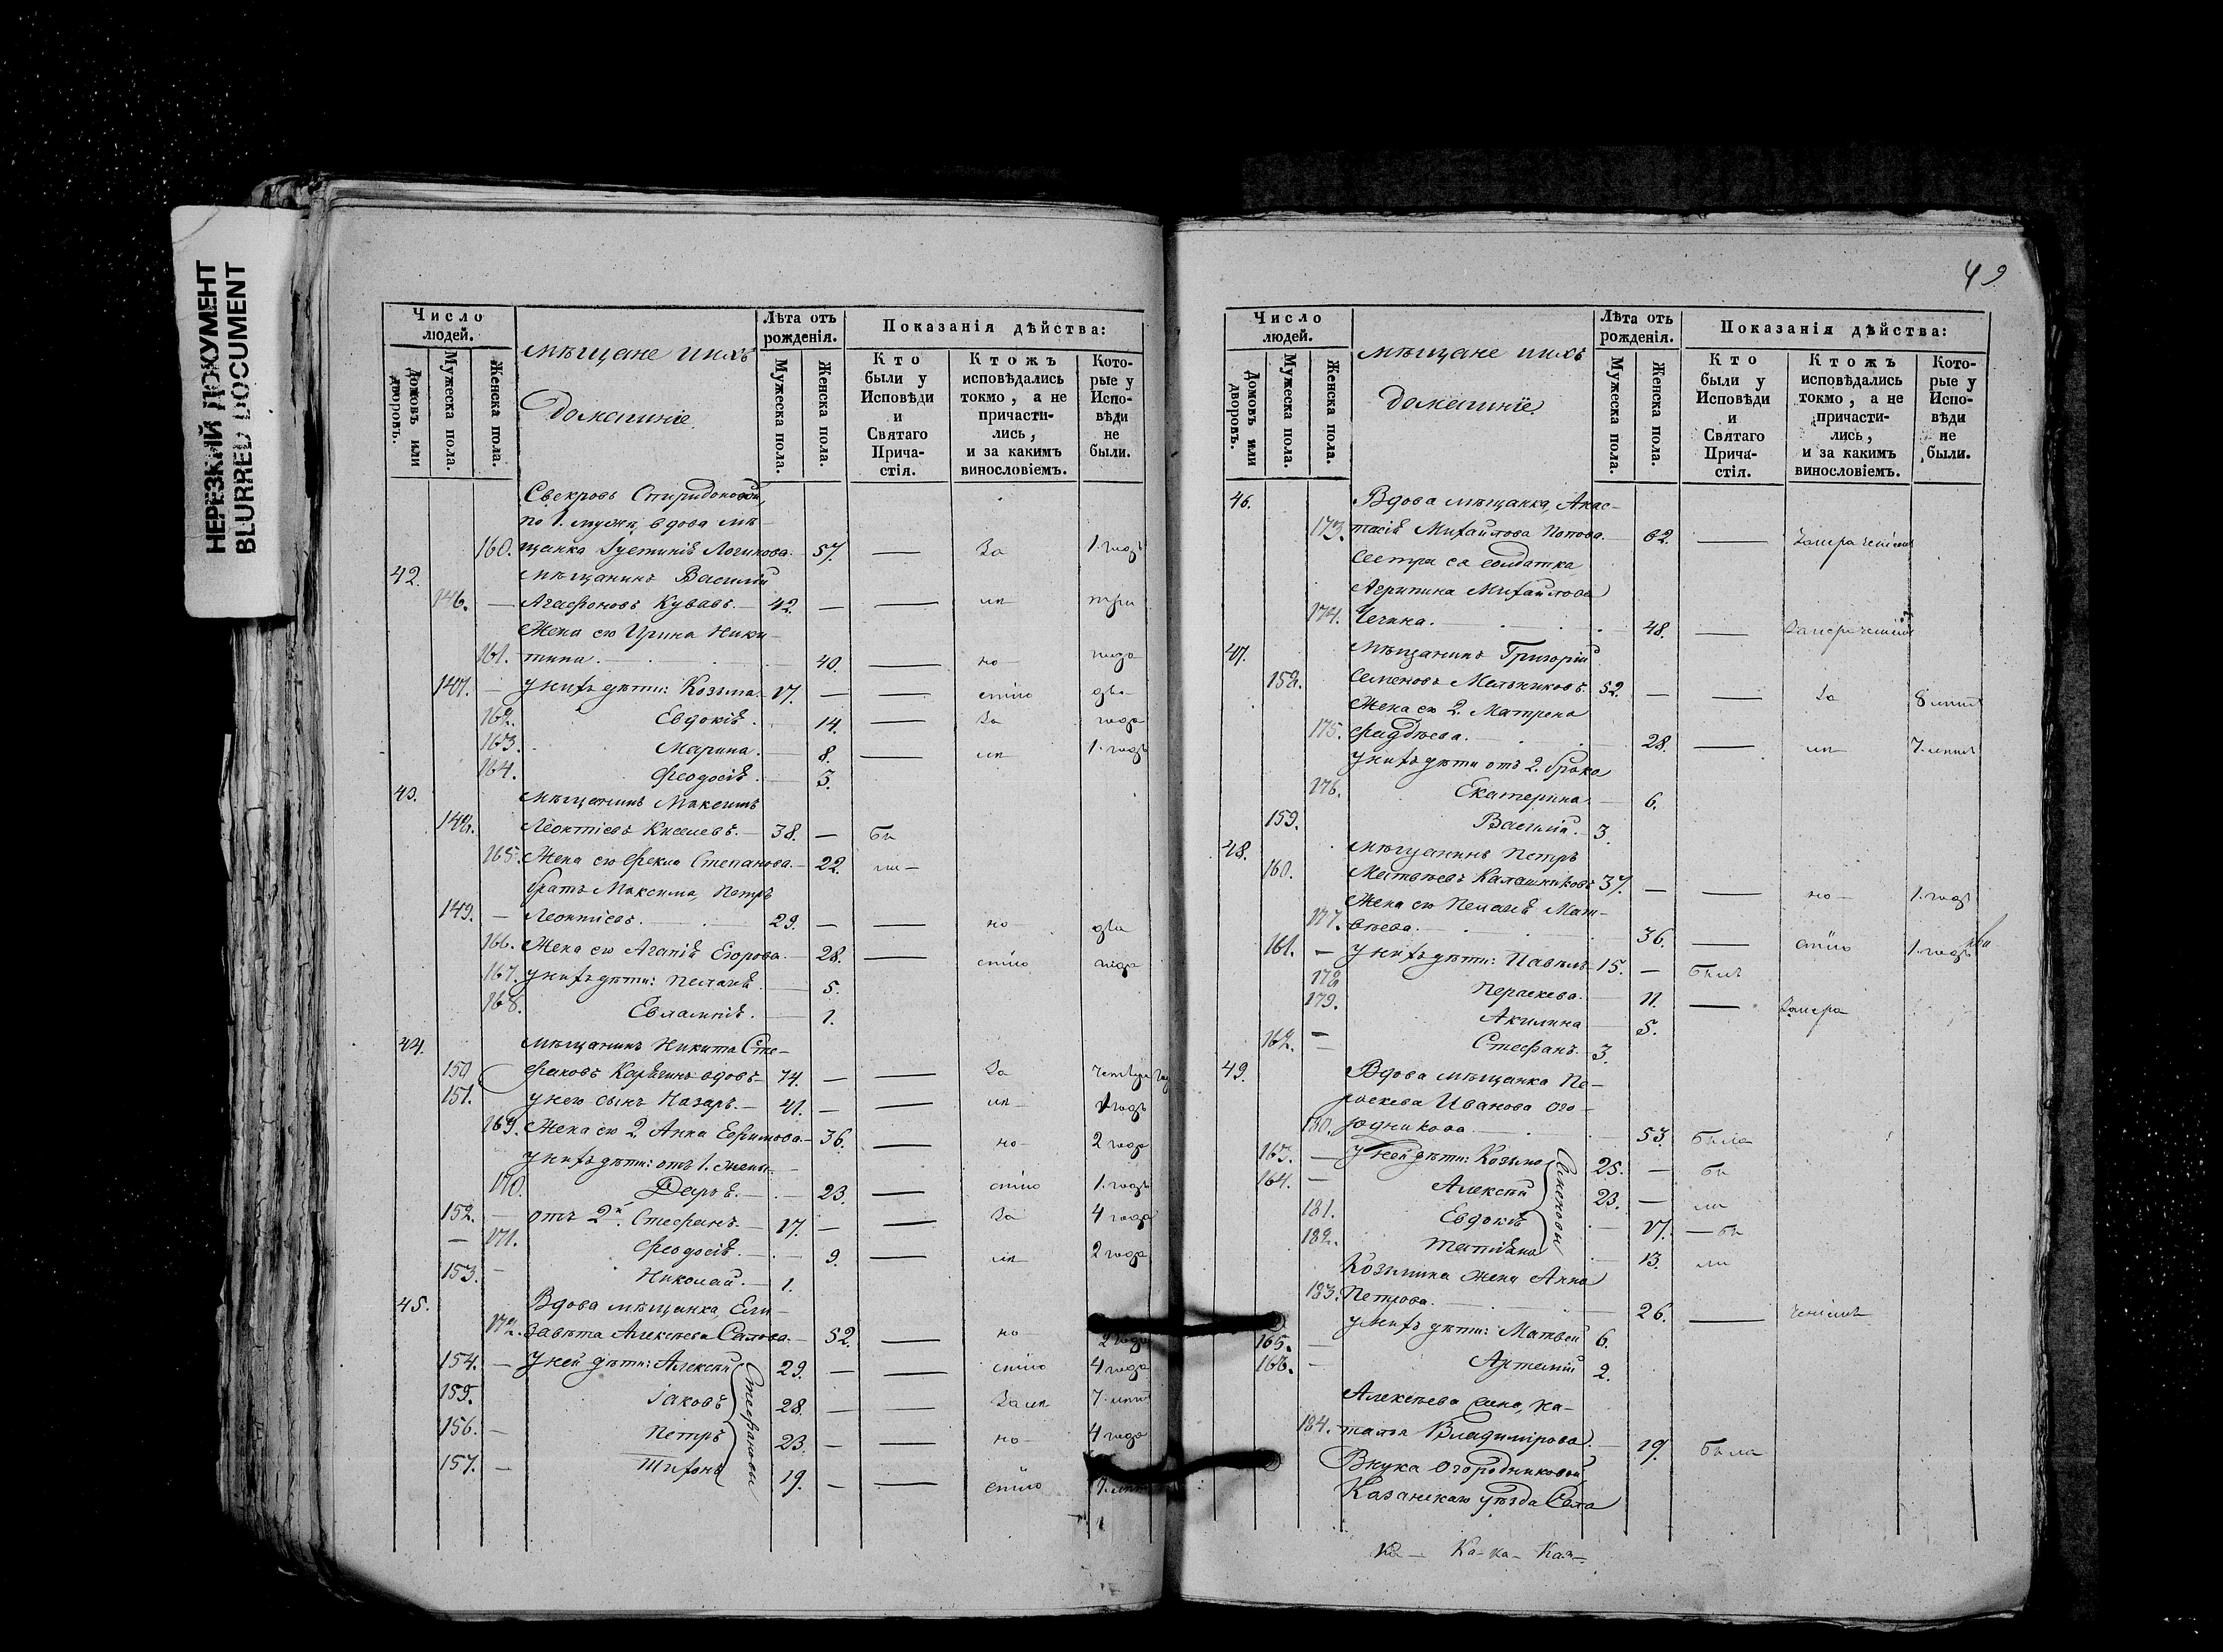 НЕРЕЗКИЙ ДОКУМЕНТ
BLURRED DOCUMENT
Число людей.
Домовъ или дворовъ.
Мужеска пола.
Женска пола.
мѣщане ихъ
домашніе.
Лѣта отъ рожденія.
Мужеска пола.
Женска пола.
Показанія дѣйства:
Кто были у Исповѣди и Святаго Причастія.
Ктожъ исповѣдались токмо, а не причастились, и за какимъ винословіемъ.
Которые у Исповѣди не были.
Свекровь Спиридоновой,
по 1. мужѣ, вдова мѣ-
160. щанка Іустинія Логинова. 57. — За 1. годъ
42. Мѣщанинъ Василій
146. — Агафоновъ Кувавъ. — 42. — — ик три
Жена его Ирина Ники-
161. тина. 40. — но года
147. — у нихъ дѣти: Козьма. 17. — — стію два
162. Евдокія. 14. — За года
163. Марина. 8. — ик 1. годъ
164. Феодосія. 3.
43. Мѣщанинъ Максимъ
148. Леонтіевъ Киселевъ. — 38. — бы
165. Жена его Фекла Степанова. — 22. ли —
братъ Максима, Петръ
149. — Леонтіевъ. 29. — — но два
166. Жена его Агапія Егорова. 28. — стію года
167. у нихъ дѣти: Пелагія. 5.
168. Евлампія. 1.
44. Мѣщанинъ Никита Сте-
150 фановъ вдовъ — 74. — — За
151. у него сынъ Назаръ. — 41. — — ик 1 годъ
169. Жена его 2. Анна Ефимова. — 36. — но 2 года
у нихъ дѣти: отъ 1. жены
170. Дарья. — 23. — стію 1. годъ
152. — отъ 2й. Стефанъ. — 17. — — За 4 года
— 171. Феодосія. — 9. — ик 2 года
153. — Николай. — 1.
45. Вдова мѣщанка, Ели-
172. завѣта Алексѣева Салова. — 52. — но 2 года
154. — У ней дѣти: Алексѣй 29. — — стію 4 года
155. Іаковъ 28. — — За ик 7. лѣтъ
156. — Петръ 23. — — но 4 года
157. — Тихонъ 19. — — стію 7. лѣтъ
Стефановы
49
Число людей.
Домовъ или дворовъ.
Мужеска пола.
Женска пола.
мѣщане ихъ
домашніе.
Лѣта отъ рожденія.
Мужеска пола.
Женска пола.
Показанія дѣйства:
Кто были у Исповѣди и Святаго Причастія.
Ктожъ исповѣдались токмо, а не причастились, и за какимъ винословіемъ.
Которые у Исповѣди не были.
46. Вдова мѣщанка, Анас-
173. тасія Михайлова Попова. 62. —
Сестра ея солдатка
Агрипина Михайлова
174. 48. —
47. Мѣщанинъ Григорій
158. Семеновъ Мельниковъ. 52. — — За 8 лѣтъ
Жена его 2. Матрена
175. Фаддѣева. 28. — ик 7. лѣтъ
у нихъ дѣти отъ 2. брака
176. Екатерина. 6.
159. Василій. 3.
48. Мѣщанинъ Петръ
160. Матвѣевъ Калашниковъ 37. — — но 1. годъ
Жена его Пелагія Мат-
177. вѣева. 36. — стію 1. годъ
161. — У нихъ дѣти: Павелъ 15. — былъ
178. Пераскева. 11. — Запера
179. Акилина. 5.
162. — Стефанъ. 3.
49. Вдова мѣщанка Пе-
раскева Иванова Ого-
180. родникова. 53. была
163. — У ней дѣти: Козьма 25. — бы
164. — Алексѣй 23. — ли
181. Евдокія 17. — бы
182. Татіана 13. ли
Семеновы
Козьмина жена Анна
183. Петрова. 26. —
165. — у нихъ дѣти: Матвей 6.
166. — Артемій 2.
Алексѣева жена, На-
184. талья Владимірова. 19. была
Внука Огородниковой
Казанскаго уѣзда Села
Ка — Ка-ка- Каз-